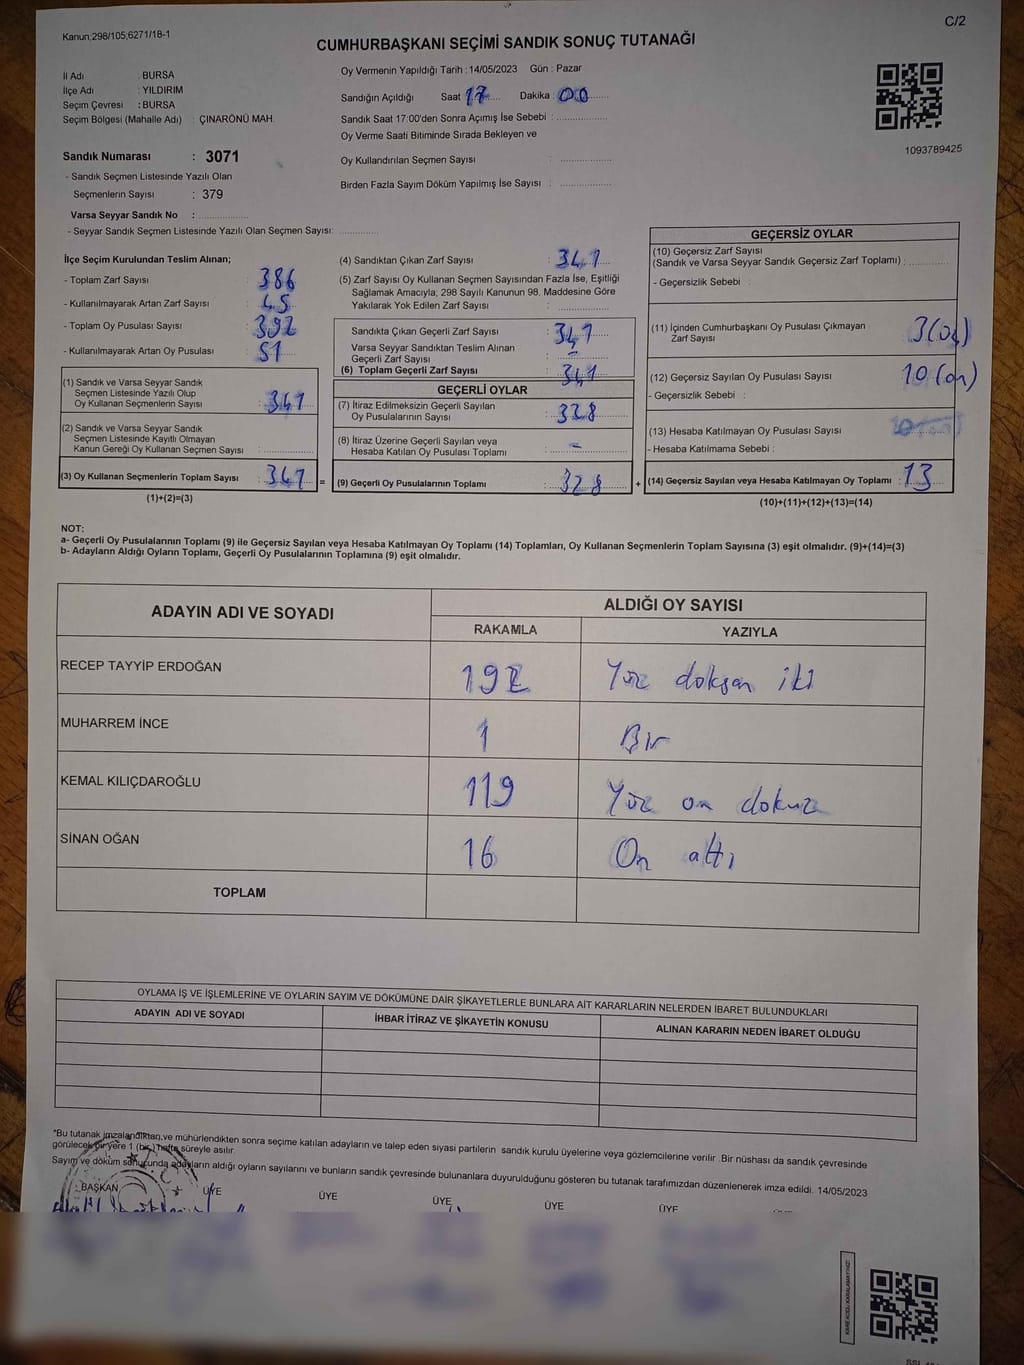 Kanun;298/105;6271/18-1
C/2
CUMHURBAŞKANI SEÇİMİ SANDIK SONUÇ TUTANAĞI
İl Adı : BURSA
İlçe Adı : YILDIRIM
Seçim Çevresi : BURSA
Seçim Bölgesi (Mahalle Adı) : ÇINARÖNÜ MAH.
Sandık Numarası : 3071
- Sandık Seçmen Listesinde Yazılı Olan
Seçmenlerin Sayısı : 379
Varsa Seyyar Sandık No : ..................
- Seyyar Sandık Seçmen Listesinde Yazılı Olan Seçmen Sayısı: ..............
Oy Vermenin Yapıldığı Tarih : 14/05/2023 Gün : Pazar
Sandığın Açıldığı Saat : 17 Dakika : 00
Sandık Saat 17:00'den Sonra Açımış İse Sebebi : ..................
Oy Verme Saati Bitiminde Sırada Bekleyen ve
Oy Kullandırılan Seçmen Sayısı : ..................
Birden Fazla Sayım Döküm Yapılmış İse Sayısı : ..................
1093789425
İlçe Seçim Kurulundan Teslim Alınan;
- Toplam Zarf Sayısı : 386
- Kullanılmayarak Artan Zarf Sayısı : 45
- Toplam Oy Pusulası Sayısı : 392
- Kullanılmayarak Artan Oy Pusulası : 51
(1) Sandık ve Varsa Seyyar Sandık
Seçmen Listesinde Yazılı Olup
Oy Kullanan Seçmenlerin Sayısı : 341
(2) Sandık ve Varsa Seyyar Sandık
Seçmen Listesinde Kayıtlı Olmayan
Kanun Gereği Oy Kullanan Seçmen Sayısı : ..............
(3) Oy Kullanan Seçmenlerin Toplam Sayısı : 341 =
(1)+(2)=(3)
(4) Sandıktan Çıkan Zarf Sayısı : 341
(5) Zarf Sayısı Oy Kullanan Seçmen Sayısından Fazla İse, Eşitliği
Sağlamak Amacıyla, 298 Sayılı Kanunun 98. Maddesine Göre
Yakılarak Yok Edilen Zarf Sayısı : ..................
Sandıkta Çıkan Geçerli Zarf Sayısı : 341
Varsa Seyyar Sandıktan Teslim Alınan
Geçerli Zarf Sayısı : -
(6) Toplam Geçerli Zarf Sayısı : 341
GEÇERLİ OYLAR
(7) İtiraz Edilmeksizin Geçerli Sayılan
Oy Pusulalarının Sayısı : 328
(8) İtiraz Üzerine Geçerli Sayılan veya
Hesaba Katılan Oy Pusulası Toplamı : -
(9) Geçerli Oy Pusulalarının Toplamı : 328 +
GEÇERSİZ OYLAR
(10) Geçersiz Zarf Sayısı
(Sandık ve Varsa Seyyar Sandık Geçersiz Zarf Toplamı) : ..............
- Geçersizlik Sebebi :
(11) İçinden Cumhurbaşkanı Oy Pusulası Çıkmayan
Zarf Sayısı 3 (üç)
(12) Geçersiz Sayılan Oy Pusulası Sayısı : 10 (on)
- Geçersizlik Sebebi :
(13) Hesaba Katılmayan Oy Pusulası Sayısı :
- Hesaba Katılmama Sebebi :
(14) Geçersiz Sayılan veya Hesaba Katılmayan Oy Toplamı : 13
(10)+(11)+(12)+(13)=(14)
NOT:
a- Geçerli Oy Pusulalarının Toplamı (9) ile Geçersiz Sayılan veya Hesaba Katılmayan Oy Toplamı (14) Toplamları, Oy Kullanan Seçmenlerin Toplam Sayısına (3) eşit olmalıdır. (9)+(14)=(3)
b- Adayların Aldığı Oyların Toplamı, Geçerli Oy Pusulalarının Toplamına (9) eşit olmalıdır.
ADAYIN ADI VE SOYADI ALDIĞI OY SAYISI
RAKAMLA YAZIYLA
RECEP TAYYİP ERDOĞAN 192 Yüz doksan iki
MUHARREM İNCE 1 Bir
KEMAL KILIÇDAROĞLU 119 Yüz on dokuz
SİNAN OĞAN 16 On altı
TOPLAM
OYLAMA İŞ VE İŞLEMLERİNE VE OYLARIN SAYIM VE DÖKÜMÜNE DAİR ŞİKAYETLERLE BUNLARA AİT KARARLARIN NELERDEN İBARET BULUNDUKLARI
ADAYIN ADI VE SOYADI İHBAR İTİRAZ VE ŞİKAYETİN KONUSU ALINAN KARARIN NEDEN İBARET OLDUĞU
*Bu tutanak imzalandıktan ve mühürlendikten sonra seçime katılan adayların ve talep eden siyasi partilerin sandık kurulu üyelerine veya gözlemcilerine verilir .Bir nüshası da sandık çevresinde
görülecek bir yere 1 (bir) hafta süreyle asılır.
Sayım ve döküm sonucunda adayların aldığı oyların sayılarını ve bunların sandık çevresinde bulunanlara duyurulduğunu gösteren bu tutanak tarafımızdan düzenlenerek imza edildi. 14/05/2023
BAŞKAN ÜYE ÜYE ÜYE ÜYE ÜYE